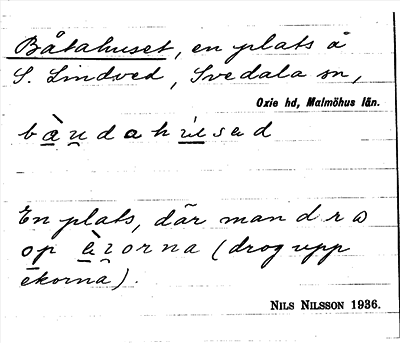 Båtahuset, en plats å
S. Lindved, Svedala sn,
Oxie hd, Malmöhus län.
bàu̯dahu̇sed
En plats, där man dro
op èʒorna (drog upp
ekorna).
NILS NILSSON 1936.